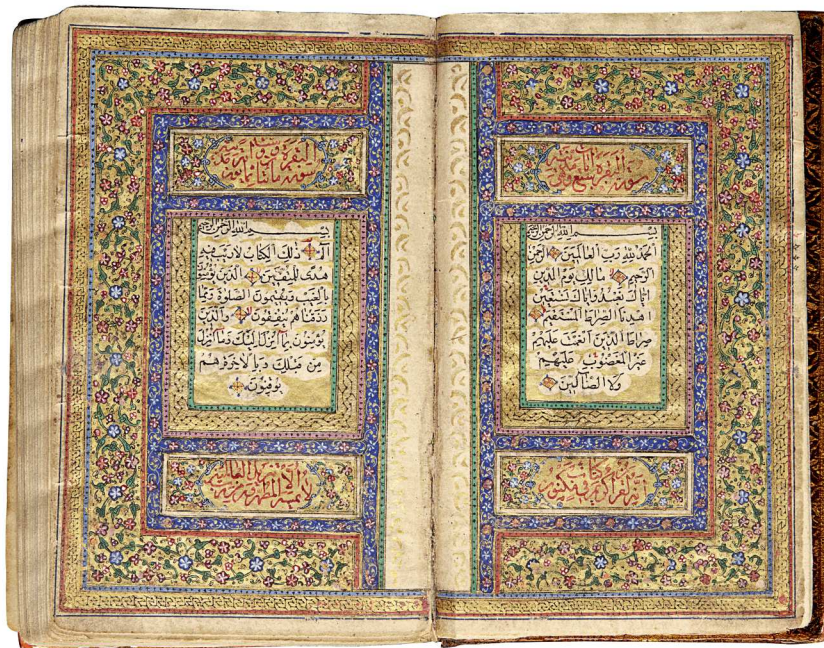 سورة
بسم الله الرحمن الرحيم
الحمد لله رب العالمين الرحمن
الرحيم مالك يوم الدين
اياك نعبد واياك نستعين
اهدنا الصراط المستقيم
صراط الذين انعمت عليهم
غير المغضوب عليهم
ولا الضالين
انه لقرآن كريم في كتاب مكنون
سورة البقرة
بسم الله الرحمن الرحيم
الم ذلك الكتاب لا ريب فيه
هدى للمتقين الذين يؤمنون
بالغيب ويقيمون الصلوة ومما
رزقناهم ينفقون والذين
يؤمنون بما انزل اليك وما انزل
من قبلك وبالاخرة هم
يوقنون
لا يمسه الا المطهرون تنزيل من رب العالمين